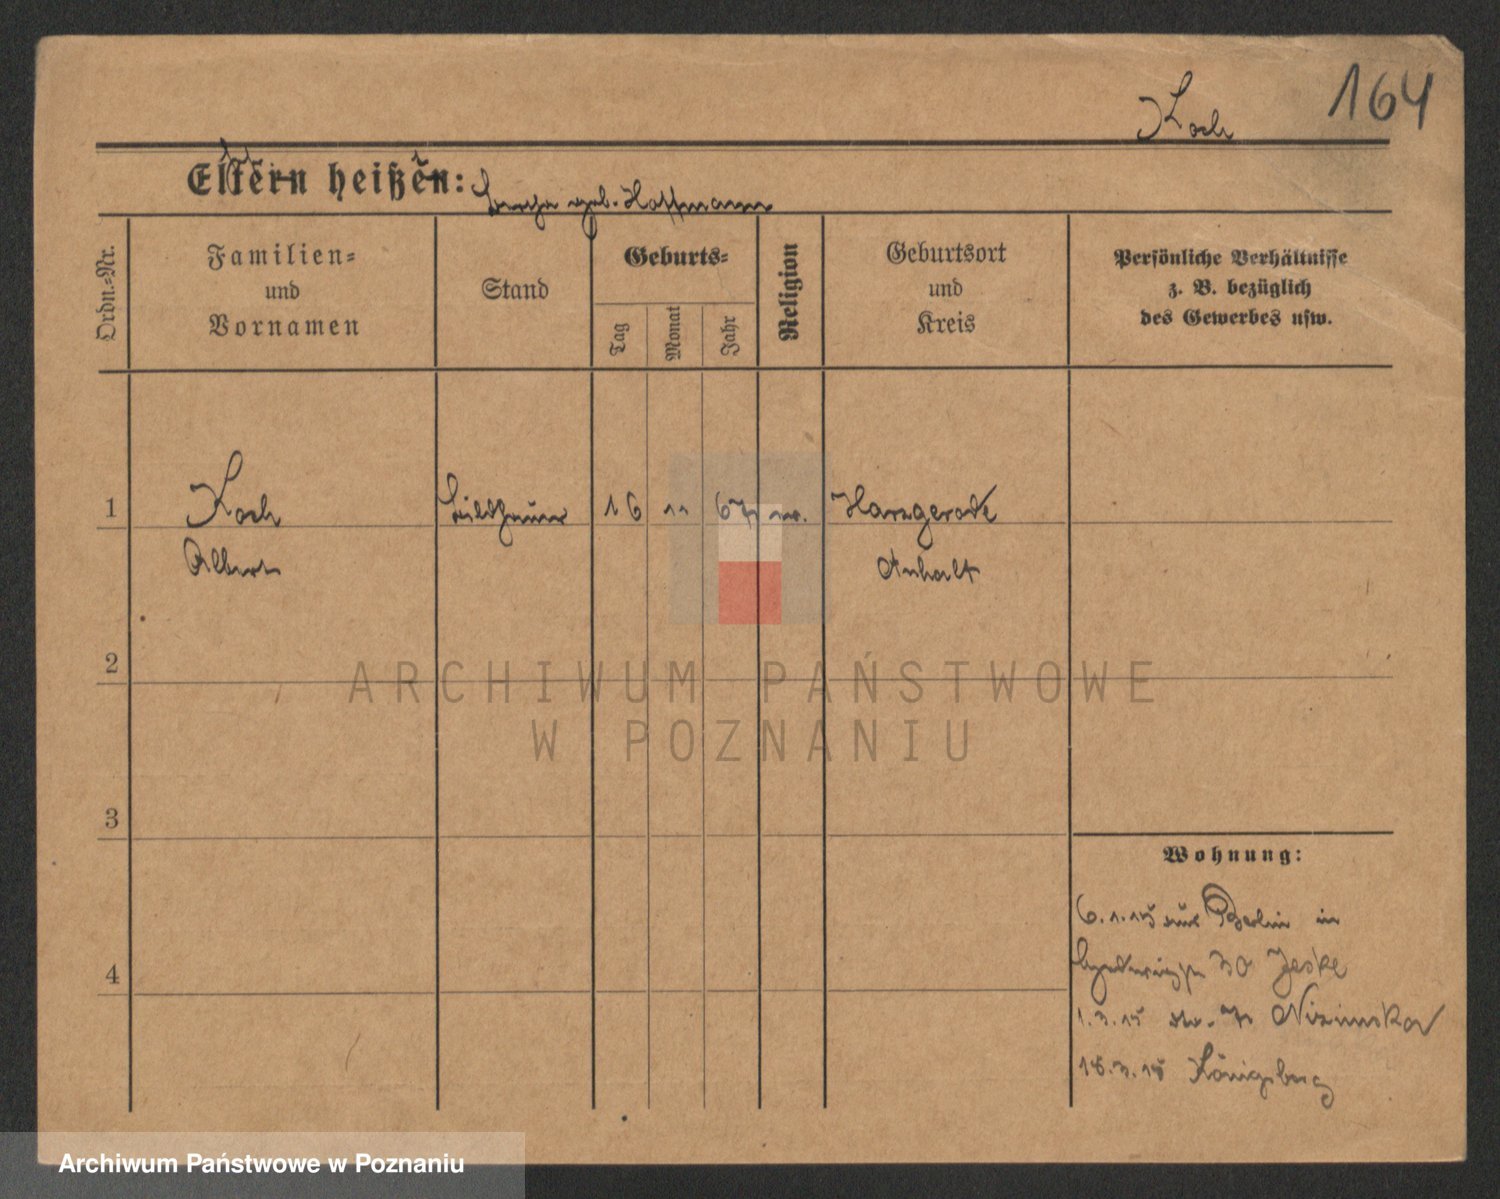 164
Koch
Eltern heißen:
geb. Hoffmann
Ordn.-Nr.
Familien-
und
Vornamen
Stand
Geburts-
Tag
Monat
Jahr
Religion
Geburtsort
und
Kreis
Persönliche Verhältnisse
z. B. bezüglich
des Gewerbes usw.
1
Koch
Bildhauer
16
11
67
Harzgerode
Albert
Anhalt
2
ARCHIWUM PAŃSTWOWE
W POZNANIU
3
Wohnung:
6.1.15 aus Berlin in
30 Jeske
4
1.3.15
18.3.15 Königsberg
Archiwum Państwowe w Poznaniu